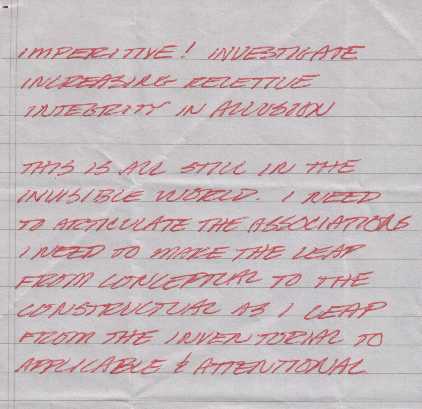 IMPERITIVE! INVESTIGATE
INCREASING RELETIVE
INTEGRITY IN ALLUSION
THIS IS ALL STILL IN THE
INVISIBLE WORLD. I NEED
TO ARTICULATE THE ASSOCIATIONS
I NEED TO MAKE THE LEAP
FROM CONCEPTUAL TO THE
CONSTRUCTUAL AS I LEAP
FROM THE INVENTORIAL TO
APPLICABLE & ATTENTIONAL